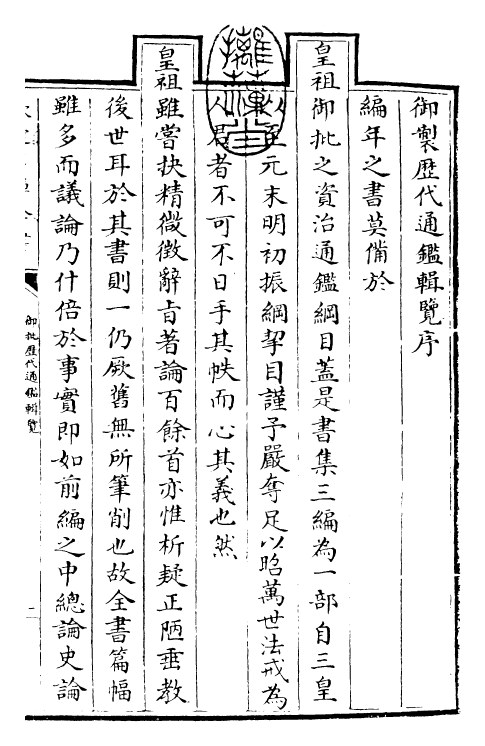 御製歷代通鑑輯覽序
編年之書莫備於
皇祖御批之資治通鑑綱目蓋是書集三編為一部自三皇
以至元末明初振綱挈目謹予嚴奪足以昭萬世法戒為
人君者不可不日手其帙而心其義也然
皇祖雖嘗抉精微徵辭旨著論百餘首亦惟析疑正陋垂教
後世耳於其書則一仍厥舊無所筆削也故全書篇幅
雖多而議論乃什倍於事實即如前編之中總論史論
御批歷代通鑑輯覽
一